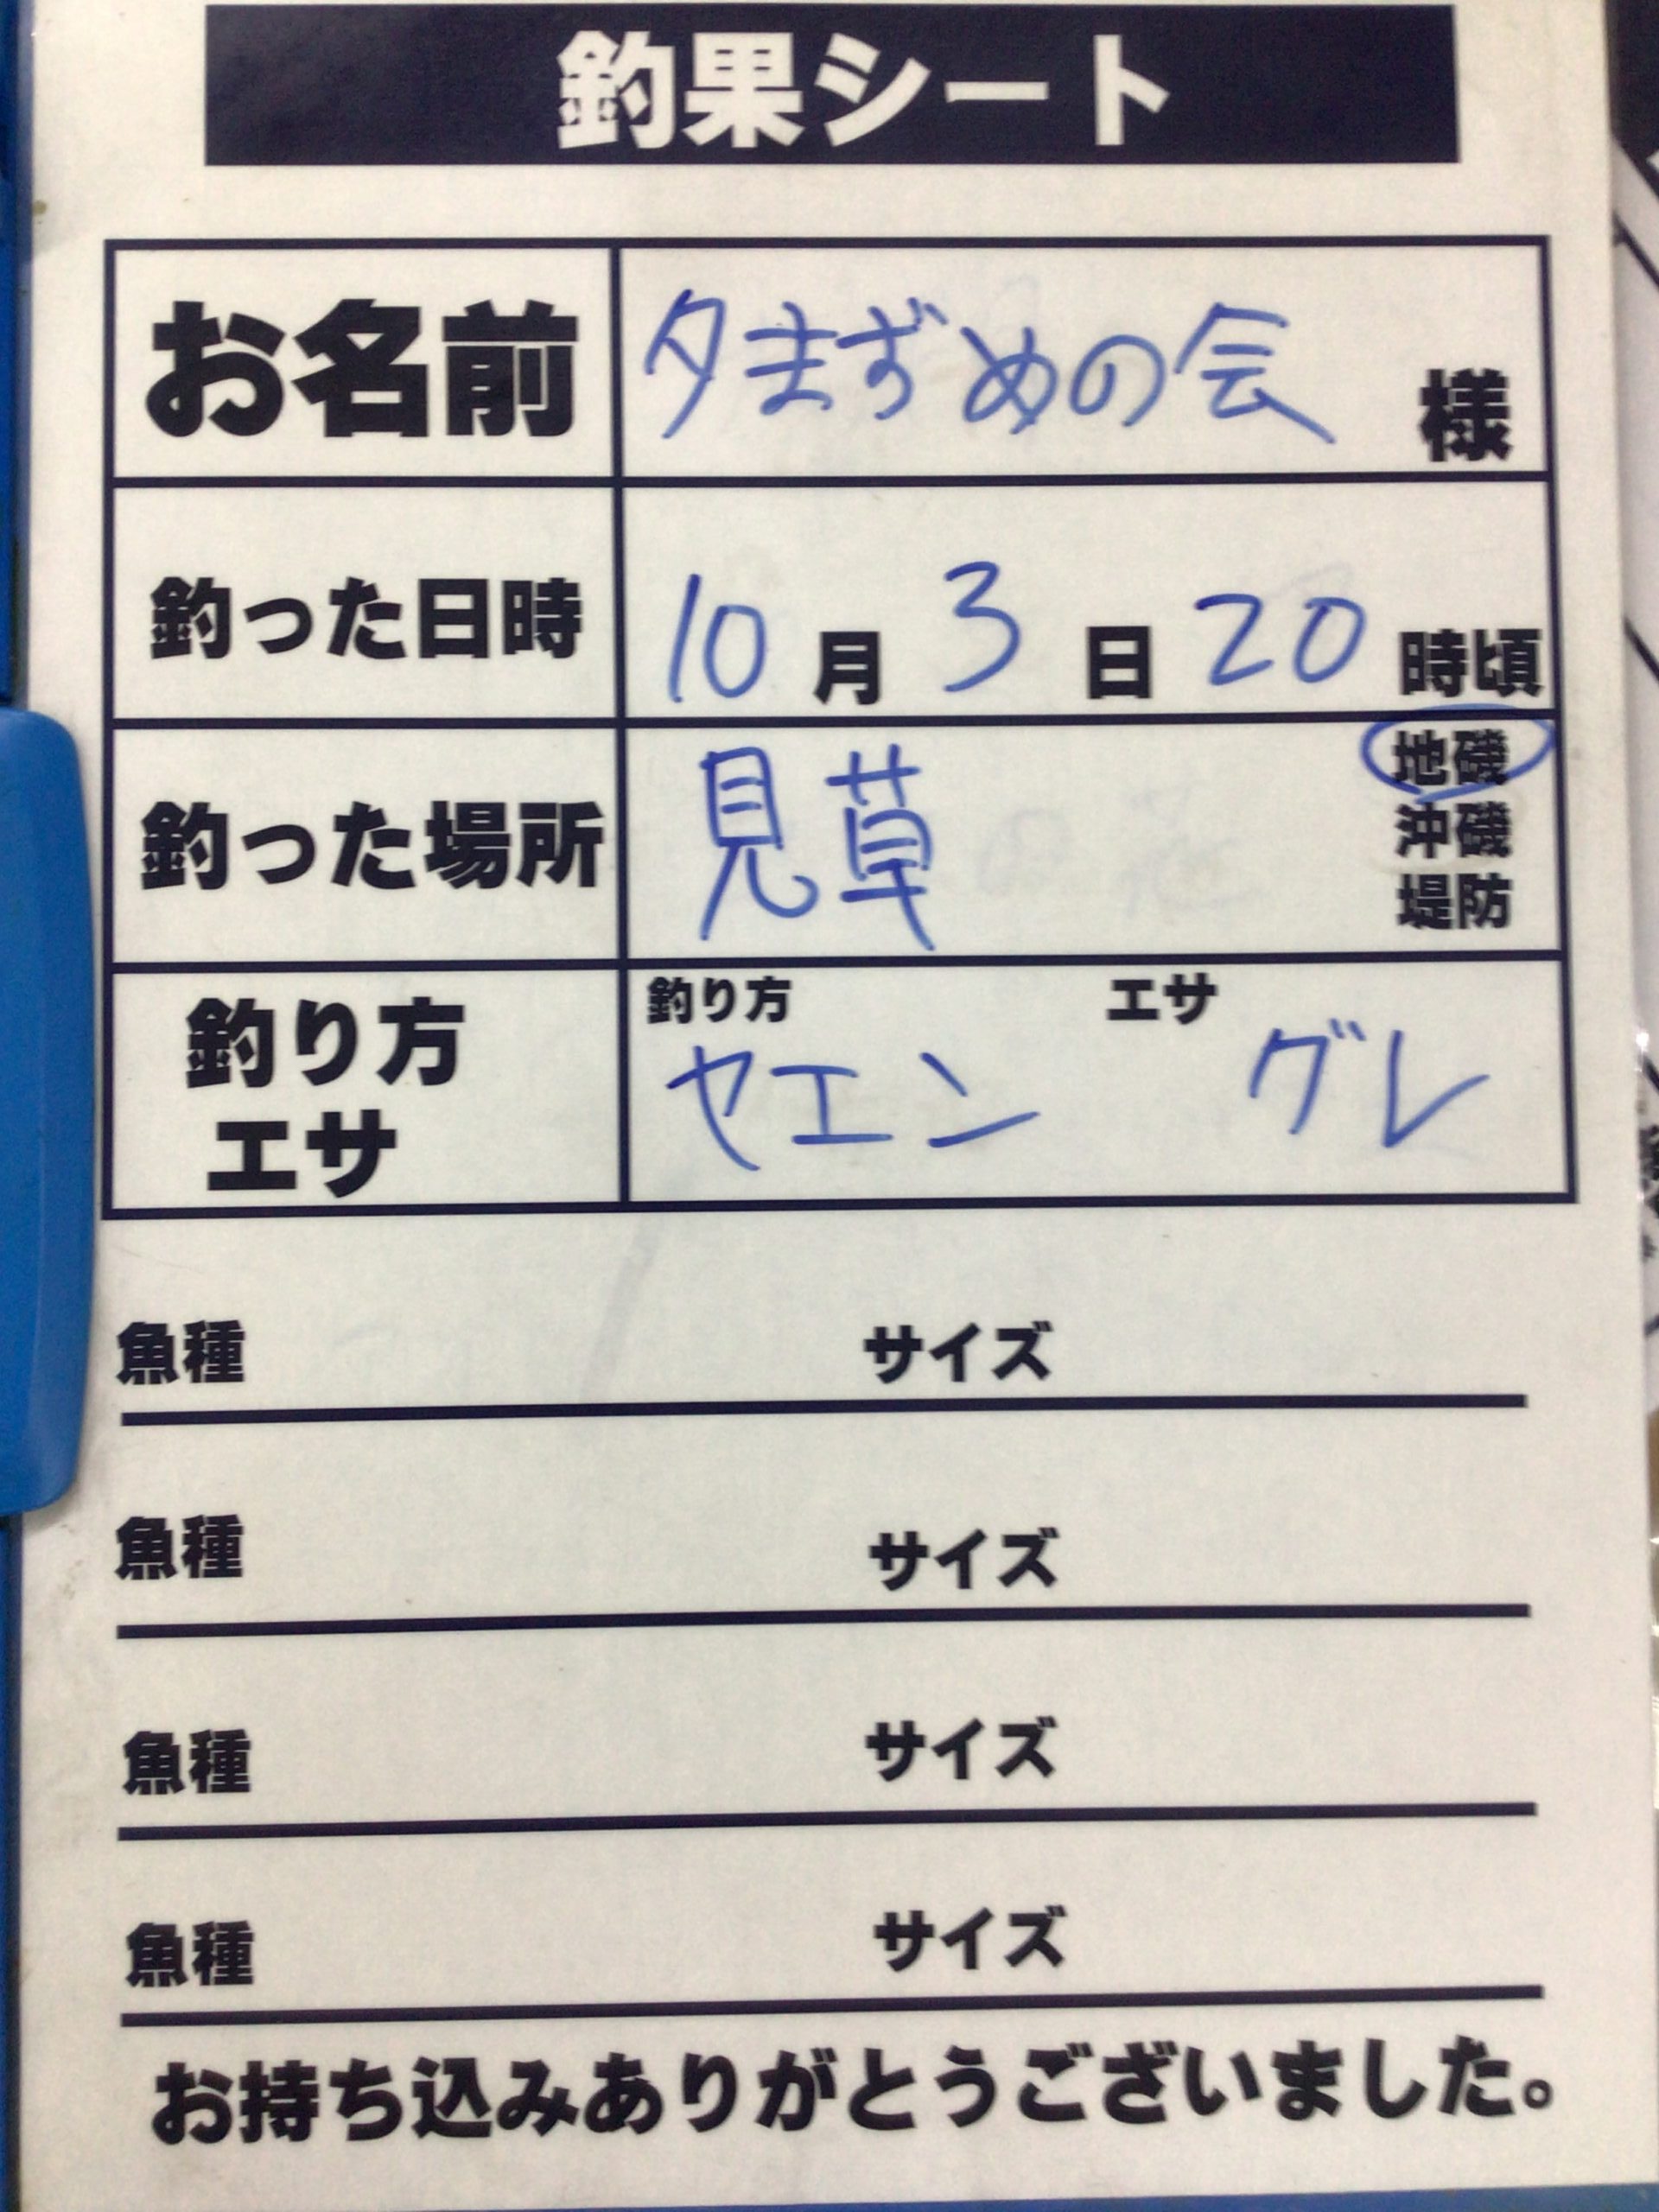 釣果シート
お名前 夕まずめの会 様
釣った日時 10月3日20時頃
釣った場所 見草 地磯
沖磯
堤防
釣り方 エサ
釣り方 ヤエン グレ
エサ
魚種 サイズ
魚種 サイズ
魚種 サイズ
魚種 サイズ
お持ち込みありがとうございました。